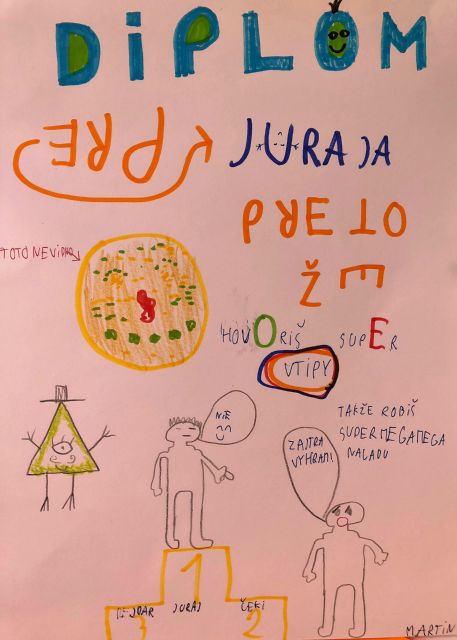 DIPLÓM
PRE JURAJA
PRETO
ŽE
TOTO NEVIDNO
1
HOVORIŠ SUPER
VTIPY
TAKŽE ROBIŠ
SUPERMEGAMEGA
NALADU
NIE
ZAJTRA
VYHRÁM!
1
JURAJ
ČEKI
3
2
MARTIN